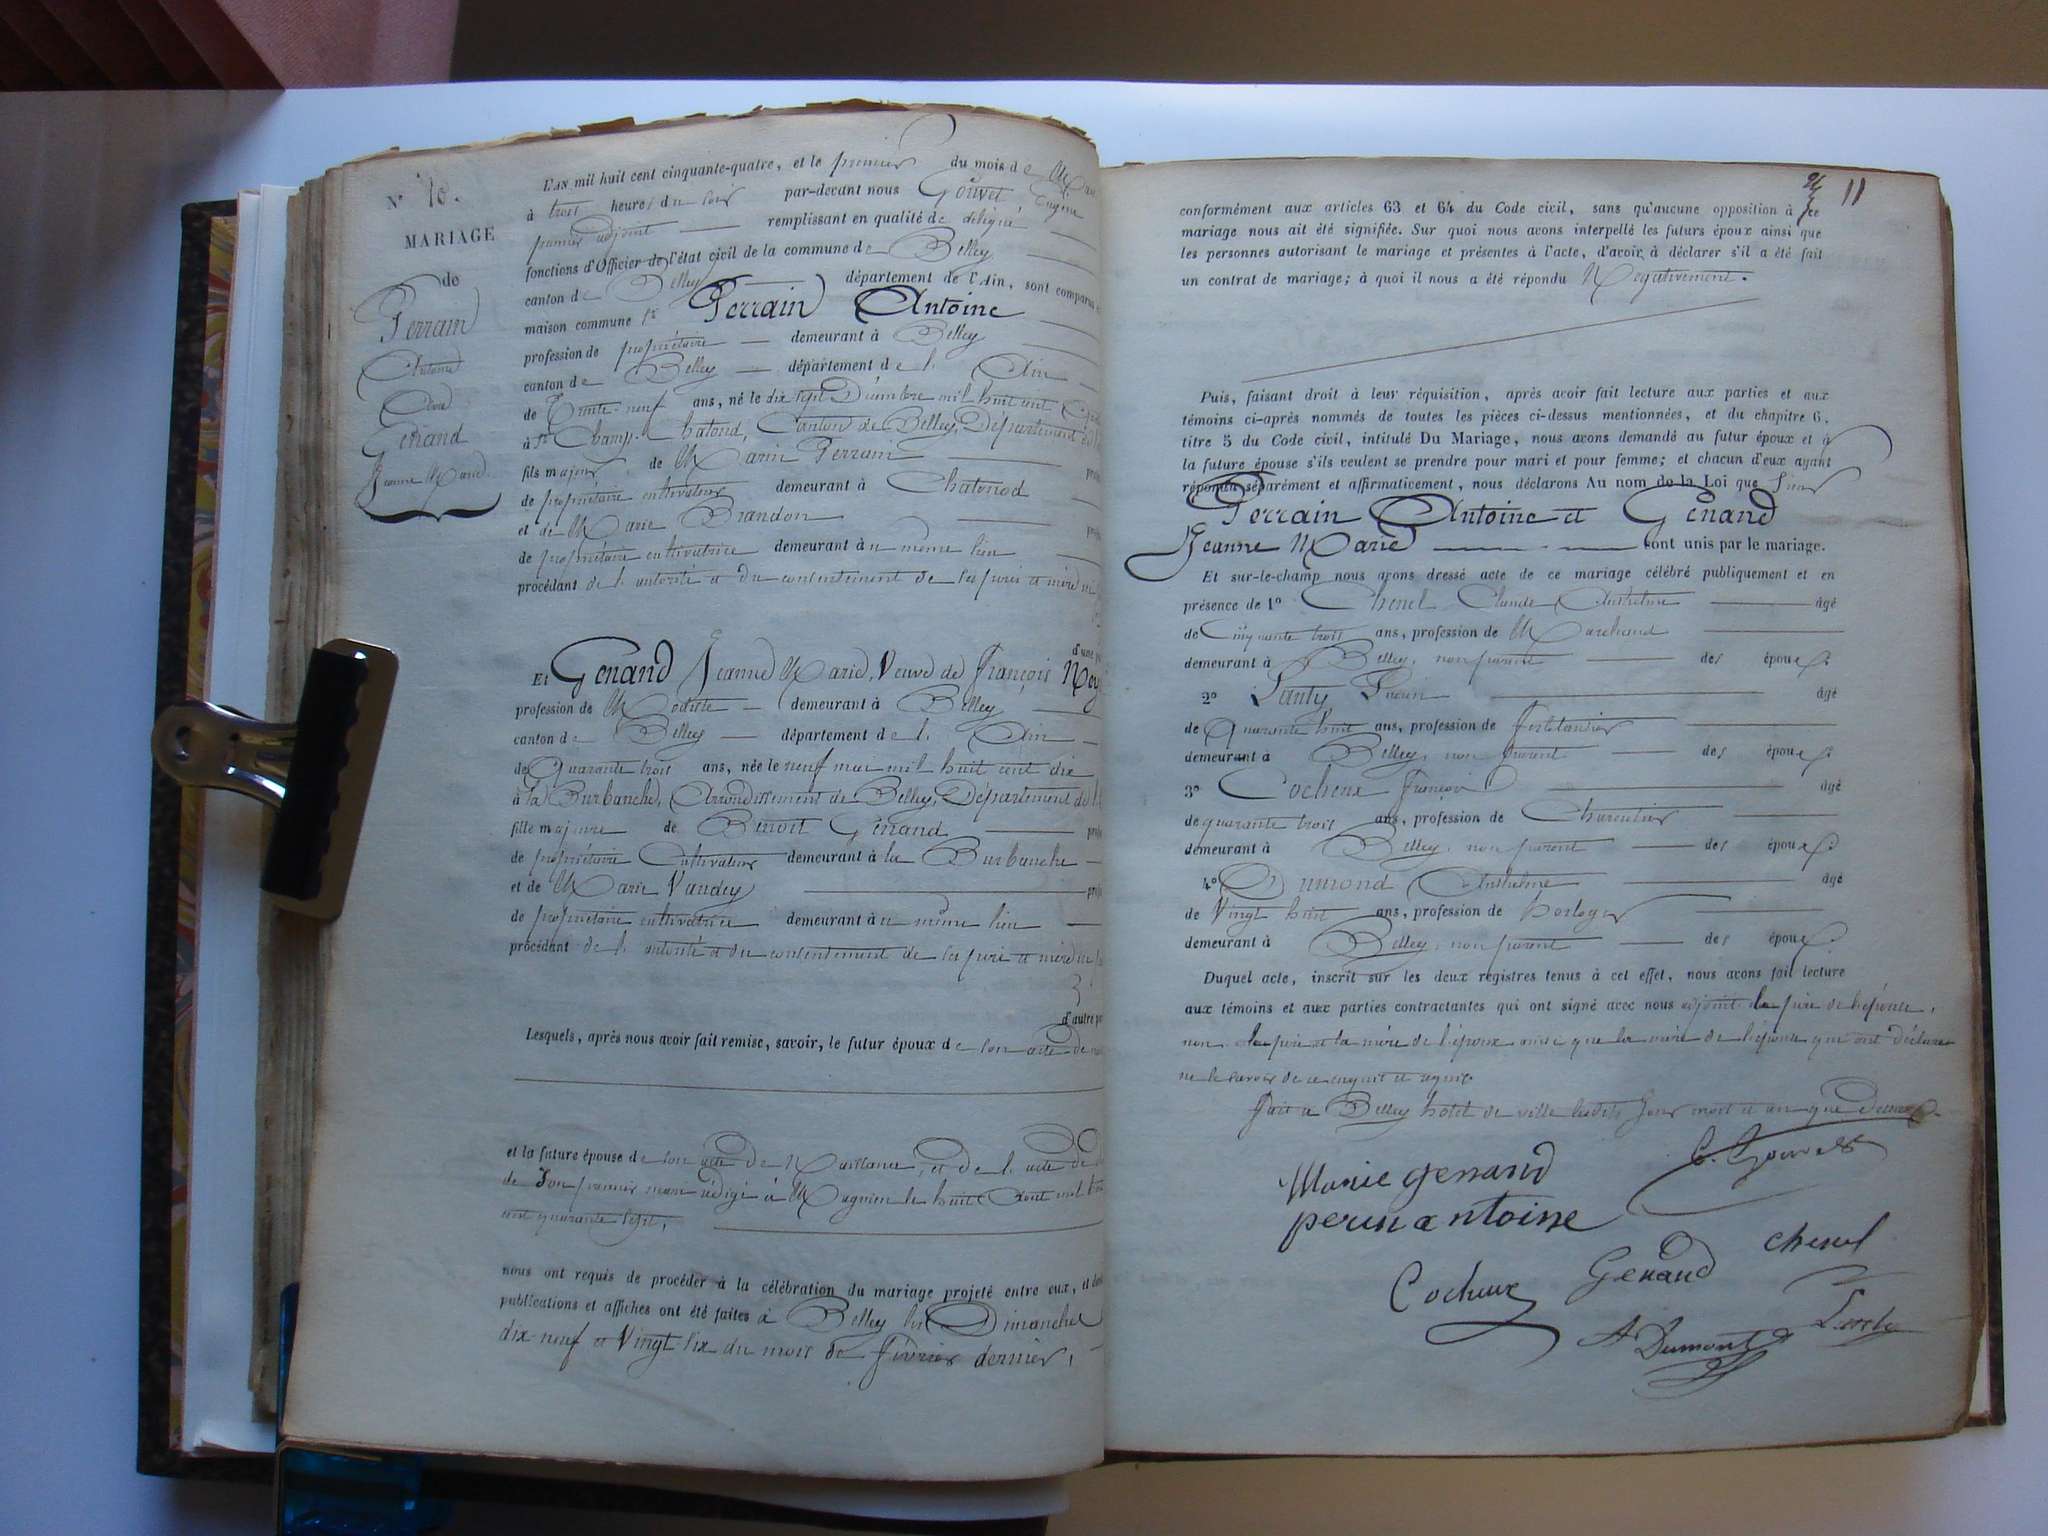 N° 10.
MARIAGE
de
Perrain
Antoine
Avec
Genand
Jeanne Marie
L'AN mil huit cent cinquante-quatre, et le premier du mois de Mars
à trois heures du soir par-devant nous Gouvet, Eugène
premier adjoint remplissant en qualité de délégué
fonctions d'Officier de l'état civil de la commune de Belley
canton de Belley département de l'Ain, sont comparus
maison commune Sr Perrain Antoine
profession de propriétaire demeurant à Belley
canton de Belley département de l' Ain
de Trente neuf ans, né le dix sept Décembre mil huit cent
à St Champ-Chatonod, Canton de Belley, Département de l'
fils majeur de Marin Perrain
de propriétaire cultivateur demeurant à Chatonod
et de Marie Brandon
de propriétaire cultivatrice demeurant à u même lieu
procédant de l'autorité et du consentement de ses père et mère
d'une
Et Genand Jeanne Marie, Veuve de François
profession de Modiste demeurant à Belley
canton de Belley département de l' Ain
de Quarante trois ans, née le neuf mai mil huit cent dix
à la Burbanche, Arrondissement de Belley, Département de l'
fille majeure de Benoit Genand
de propriétaire Cultivateur demeurant à la Burbanche
et de Marie Vandey
de propriétaire cultivatrice demeurant à u même lieu
procédant de l'autorité et du consentement de ses père et mère
d'autre
Lesquels, après nous avoir fait remise, savoir, le futur époux de son acte de
et la future épouse de son acte de Naissance, et de l'acte de
de Son premier mari rédigé à Magnieu le huit Août mil
cent quarante sept,
nous ont requis de procéder à la célébration du mariage projeté entre eux, et
publications et affiches ont été faites à Belley les Dimanches
dix neuf et Vingt six du mois de février dernier,
11
conformément aux articles 63 et 64 du Code civil, sans qu'aucune opposition à ce
mariage nous ait été signifiée. Sur quoi nous avons interpellé les futurs époux ainsi que
les personnes autorisant le mariage et présentes à l'acte, d'avoir à déclarer s'il a été fait
un contrat de mariage; à quoi il nous a été répondu Négativement.
Puis, faisant droit à leur réquisition, après avoir fait lecture aux parties et aux
témoins ci-après nommés de toutes les pièces ci-dessus mentionnées, et du chapitre 6,
titre 5 du Code civil, intitulé Du Mariage, nous avons demandé au futur époux et à
la future épouse s'ils veulent se prendre pour mari et pour femme; et chacun d'eux ayant
répondu séparément et affirmaticement, nous déclarons Au nom de la Loi que Sieur
Perrain Antoine et Genand
Jeanne Marie sont unis par le mariage.
Et sur-le-champ nous avons dressé acte de ce mariage célébré publiquement et en
présence de 1° Chenel Claude Anthelme âgé
de Cinquante trois ans, profession de Marchand
demeurant à Belley, non parent des époux.
2° âgé
de Quarante huit ans, profession de ferblantier
demeurant à Belley, non parent des époux.
3° Cocheux François âgé
de quarante trois ans, profession de Charcutier
demeurant à Belley, non parent des époux.
4° Dumond Anthelme âgé
de Vingt huit ans, profession de horloger
demeurant à Belley, non parent des époux.
Duquel acte, inscrit sur les deux registres tenus à cet effet, nous avons fait lecture
aux témoins et aux parties contractantes qui ont signé avec nous adjoint le père de l'épouse,
non le père et la mère de l'époux ainsi que la mère de l'épouse qui ont déclaré
ne le savoir de ce enquis et requis.
fait à Belley hôtel de ville lesdits jour mois et an que dessus.
Marie genand
E. Gouvet
perin antoine
Genand
chenel
Cocheux
A Dumont